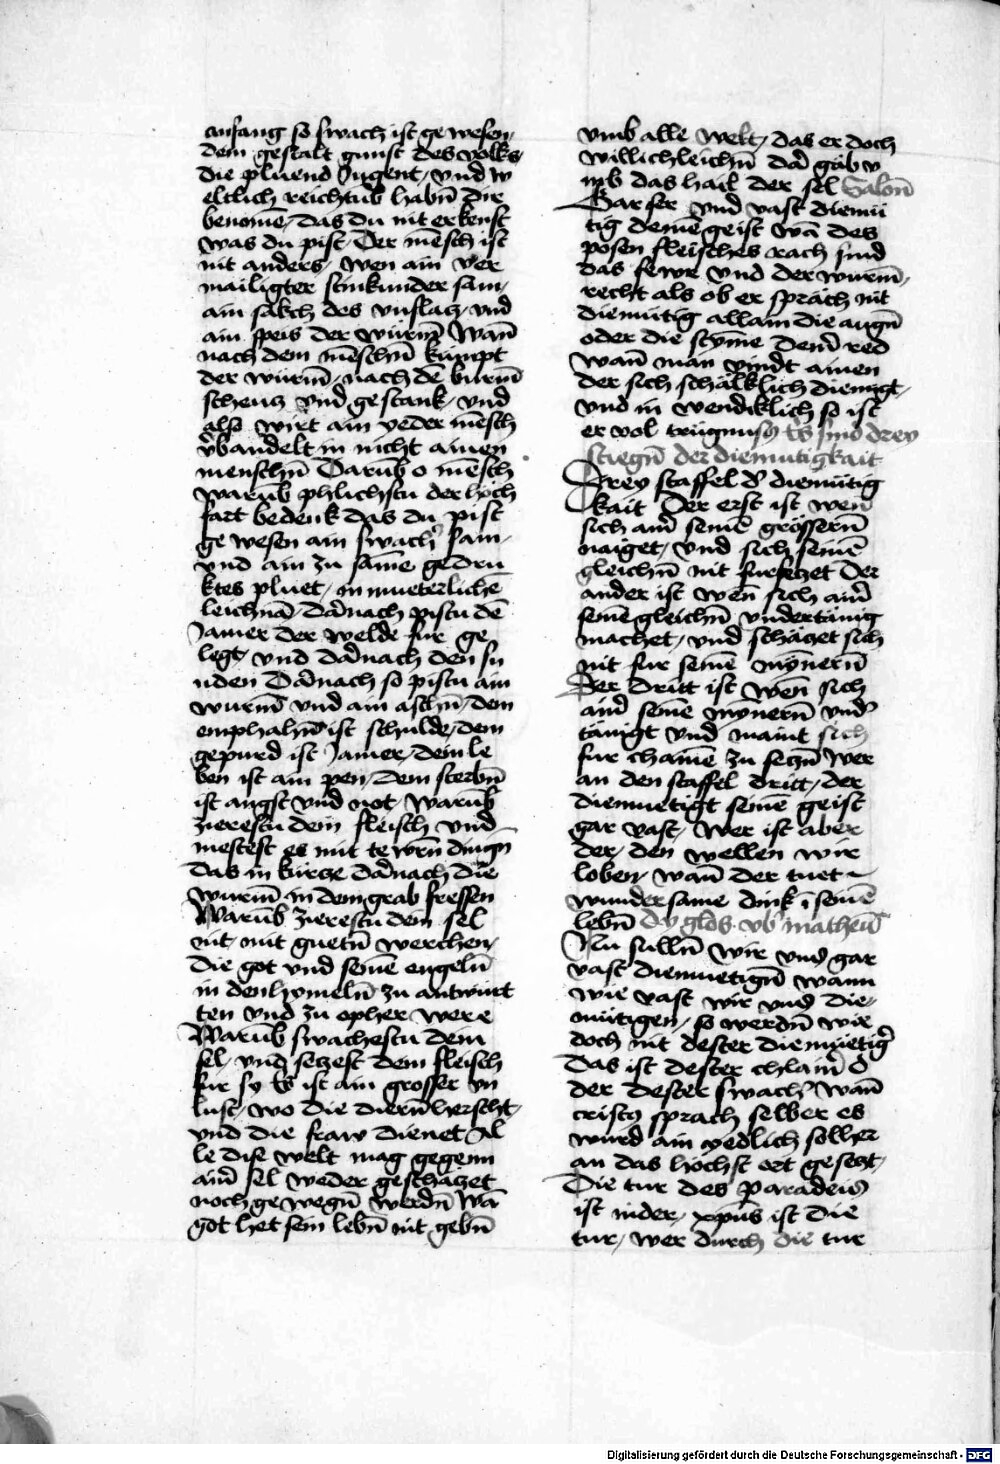 anfang so swach ist ge wesen,
dem gestalt gunst des volks,
die pluend Jugent, vnd w
eltlich reichtub habn̄ dir
benomē, das du nit erkenst
was du pist, Der mēsch ist
nit anders, wen ain ver
mailigter stinkunder sam,
ain sakch des vnflacz, vnd
ain speis der würm̄ Wan̄
nach dem mēschn̄ kumpt
der würm̄, nach dē burm̄
scheucz vnd gestank, vnd
also wirt ain yeder mēsch
v̄bandelt in nicht ainen
menschn̄ Darub o mēsch
warūb phlichstu der hoch
fart bedenk das du pist
ge wesen ain swach̄ sam,
vnd ain zu sāme gedru
ktes pluet, in mueterlichē
leichnā, dan̄nach pistu dē
Jamer der welde fur ge
legt, vnd dan̄nach den su
nden Dan̄nach so pistu ain
wurm̄ vnd ain aschn̄, dem
emphahn̄ ist schulde, dem
gepurd ist Jamer, dem le
ben ist ain pen, dem sterbn̄
ist angst vnd not, Warūb
zierestu dein fleisch vnd
mestest es mit tewrn̄ dingn̄
das in kurcze dan̄nach die
wurm̄ in dem grab fressen
Warūb zierestu dein sel
nit, mit guetn̄ werchen,
die got vnd seinē engeln̄
in den hymeln̄ zu antwurt
ten vnd zu opher were
Warūb swachestu dein
sel, vnd seczest dem fleisch
fur sy Es ist ain grosser vn
lust, wo die diern̄ herscht,
vnd die fraw dienet Al
le dise welt mag gegenn
ain̄ sel weder geschaczet
noch ge wegn̄ werdn̄ Wā
got het sein lebn̄ nit gebn̄
vmb alle welt, das er doch
willichleichn̄ da gab v
mb das hail der sel Salon̄
Gar ser vnd vast diemü
tig deinē geist wā des
posen fleisches rach sind
das fewr vnd der wurm̄,
recht als ob er spräch nit
diemütig allain die augn̄
oder die stymme dein̄ red
wan̄ man vindt ainen
der sich schälklich diemugt,
vnd in wendiklich so ist
er vol trügnuss Es sind drey
stiegn̄ der diemutigkait
Drey staffel d' diemütig
kait Der erst ist wen̄
sich ain̄ seinē grössern̄
naiget, vnd sich seinē
gleichn̄ nit furseczet Der
ander ist wen̄ sich ain̄
seinē gleichn̄ vndertänig
machet, vnd schäczet sich
nit fur seinē mynnern̄
Der dritt ist wen̄ sich
ain̄ seinē mynnern̄ vnd̄
tänigt vnd maint sich
fur chainē zu seczn̄ Wer
an den staffel dritt, der
diemuetigt seinē geist
gar vast, Wer ist aber
der, den wellen wir
loben, wan̄ der tuet
wundersame dink ī seinē
lebn̄ Dy glos vb̄ matheū
Nu sulln̄ wir vns gar
vast diemuetign̄ wann
wie vast wir vns die,
mütigen, so werdn̄ wir
doch nit dester diemuetiḡ
das ist dester chlain̄ o
der dester swach̄ Wan̄
cristus sprach selber es
wurd ain yedlich solher
an das höchst ort geseczt,
Die tur des paradeis
ist nider, xpus ist die
tur, wer durch die tur
Digitalisierung gefördert durch die Deutsche Forschungsgemeinschaft - DFG